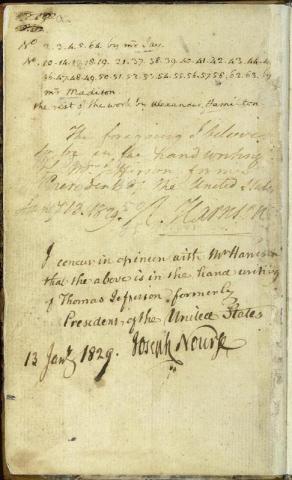 No 2. 3. 4. 5. 64. by mr Jay.
No. 10. 14. 17. 18. 19. 21. 37. 38. 39. 40. 41. 42. 43. 44. 45.
46. 47. 48. 49. 50. 51. 52. 53. 54. 55. 56. 57. 58. 62. 63. by
mr Madison.
the rest of the work by Alexander Hamilton
The foregoing I believe
to be in the hand writing
of Mr Jefferson former
President of The United States
Jany 13. 1829. R. Harrison
I concur in opinion with Mr Harrison
that the above is in the hand writing
of Thomas Jefferson, formerly
President, of the United States
13 Jany 1829. Joseph Nourse